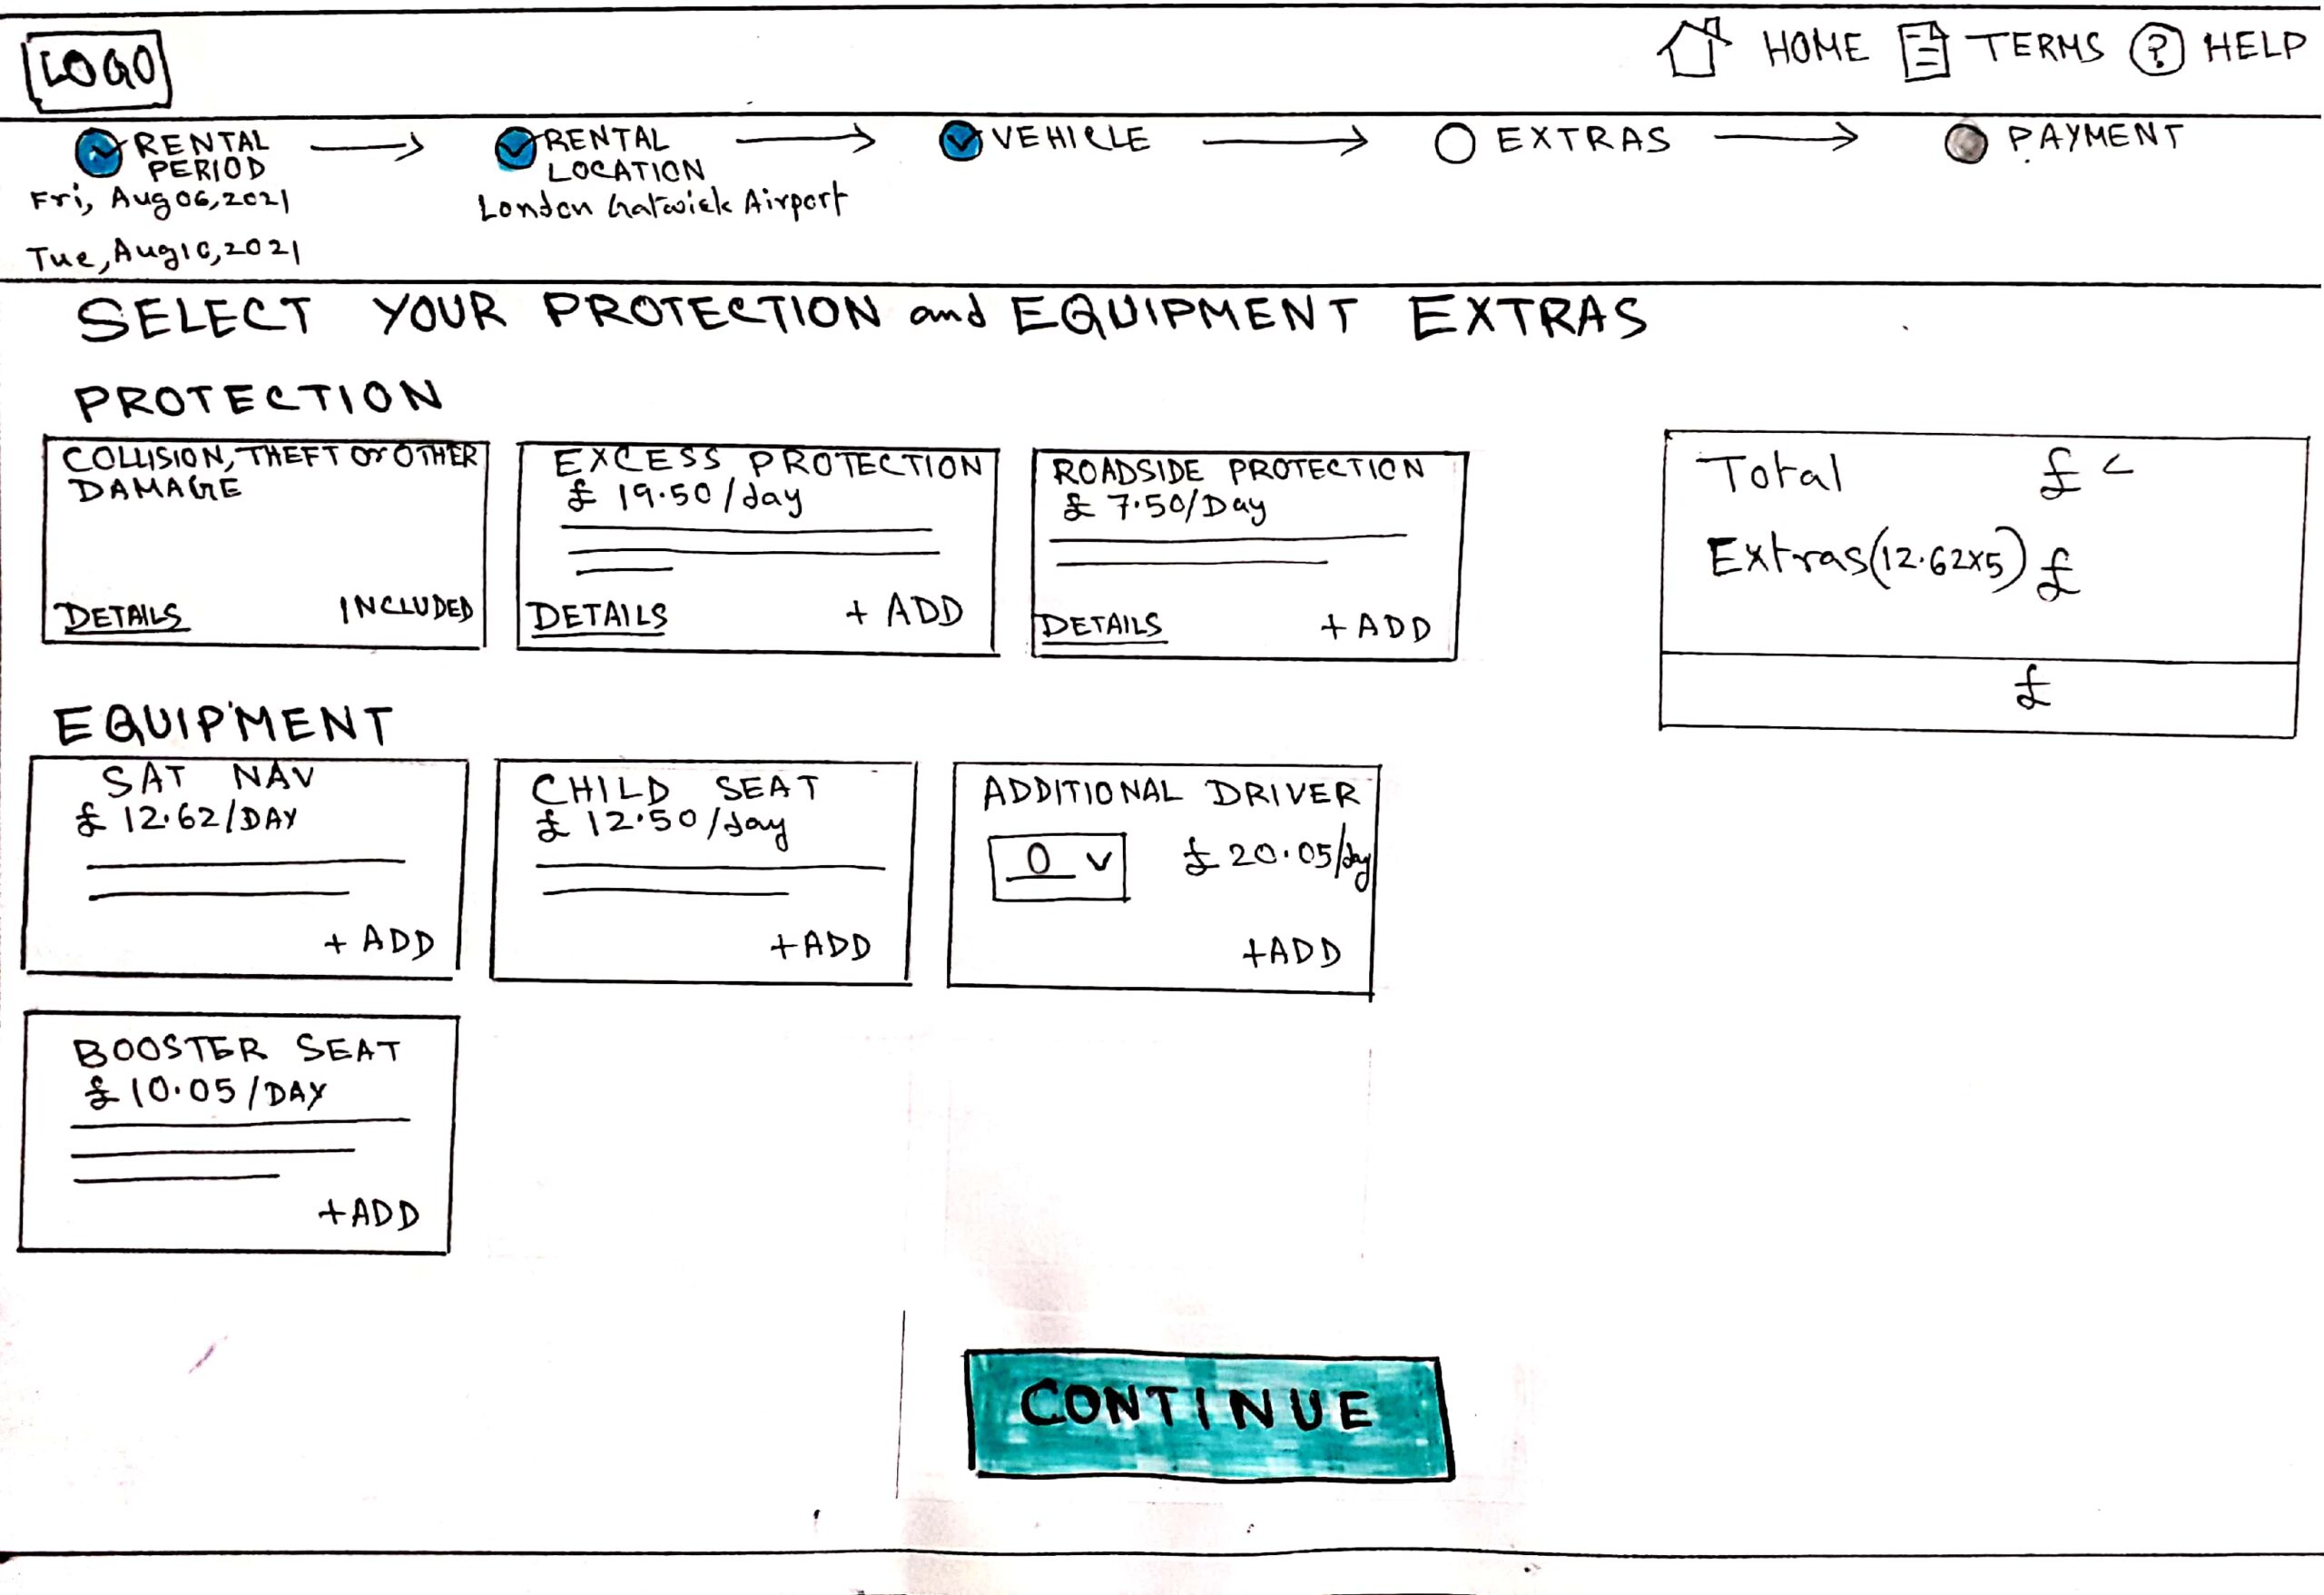 LOGO
HOME TERMS ? HELP
RENTAL PERIOD
Fri, Aug 06, 2021
Tue, Aug 10, 2021
RENTAL LOCATION
London Gatwick Airport
VEHICLE
EXTRAS
PAYMENT
SELECT YOUR PROTECTION and EQUIPMENT EXTRAS
PROTECTION
COLLISION, THEFT or OTHER
DAMAGE
DETAILS INCLUDED
EXCESS PROTECTION
£ 19.50/day
DETAILS + ADD
ROADSIDE PROTECTION
£ 7.50/Day
DETAILS + ADD
Total £
Extras(12.62x5) £
£
EQUIPMENT
SAT NAV
£ 12.62/DAY
+ ADD
CHILD SEAT
£ 12.50/day
+ADD
ADDITIONAL DRIVER
0 £ 20.05/day
+ADD
BOOSTER SEAT
£ 10.05/DAY
+ADD
CONTINUE